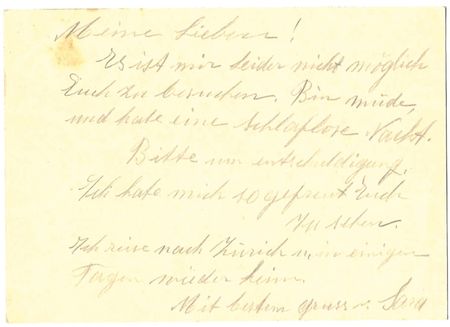 Meine Lieben!
Es ist mir leider nicht möglich
Euch zu besuchen. Bin müde,
und habe eine schlaflose Nacht.
Bitte um entschuldigung.
Ich habe mich so gefreut Euch
zu sehen.
Ich reise nach Zürich u. in einigen
Tagen wieder heim.
Mit bestem gruss v. Sara